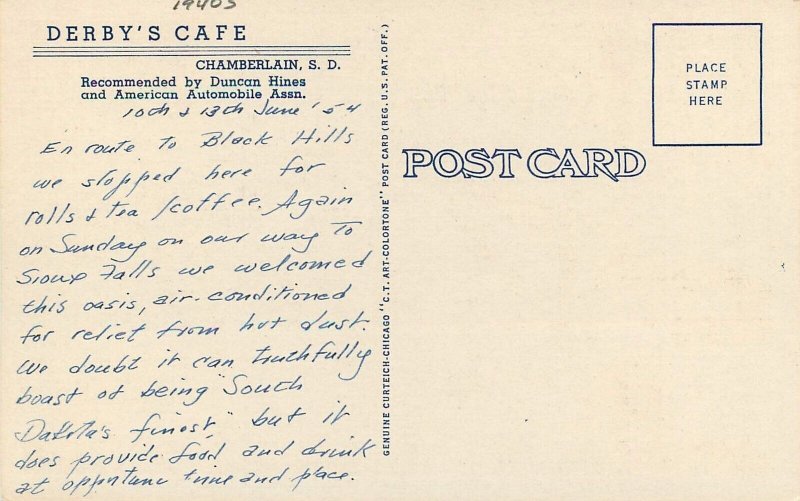 1940s
DERBY'S CAFE
CHAMBERLAIN, S. D.
Recommended by Duncan Hines
and American Automobile Assn.
10th & 13th June '54
En route to Black Hills
we stopped here for
rolls & tea /coffee. Again
on Sunday on our way to
Sioux Falls we welcomed
this oasis, air-conditioned
for relief from hot dust.
We doubt it can truthfully
boast of being "South
Dakota's finest," but it
does provide food and drink
at opportune time and place.
GENUINE CURTEICH-CHICAGO "C. T. ART-COLORTONE" POST CARD (REG. U. S. PAT. OFF.)
POST CARD
PLACE
STAMP
HERE